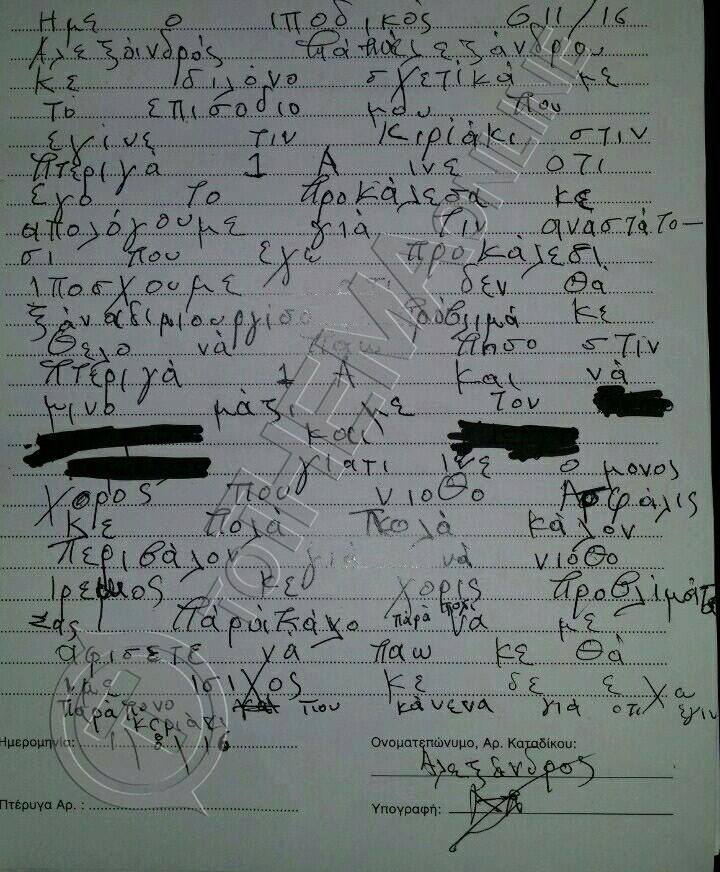 Ημε ο ιποδικός 611/16
Αλεξάνδρός Πάπάλεξάνδρου
κε διλόνο σχετίκά με
τό επισόδιο μου που
εγίνε τιν Κιριάκι στιν
Πτεριγά 1 Α ινε ότι
Εγό το Προκάλεσα κε
απολόγουμε γιά τιν αναστάτο-
σι που εγώ προκάλεσι
ιποσχουμε οτι δεν θά
ξάναδιμιουργίσο κε
Θελο νά Παω Πισο στιν
Πτεριγά 1 Α και νά
μινο μάζι με τον
και
γίατι ινε ο μονος
χορος που νιοθο Ασφάλις
κε Πολά Πολά κάλον
Περιβάλον γιά νά νιοθο
Ιρεμος κε χορις Προβλιμάτα
Σας Πάράκάλο πάρά πολι νά με
αφισετε νά παω κε θά
ιμε ισιχος κε δε εχω
Πάράπονο κάνενα γιά οτι εγινε
Κεριάκι
Ημερομηνία: 1/5/16
Ονοματεπώνυμο, Αρ. Καταδίκου:
Αλεξάνδρος
Πτέρυγα Αρ. :
Υπογραφή:
ΤΟΤΗΕΜΑONLINE